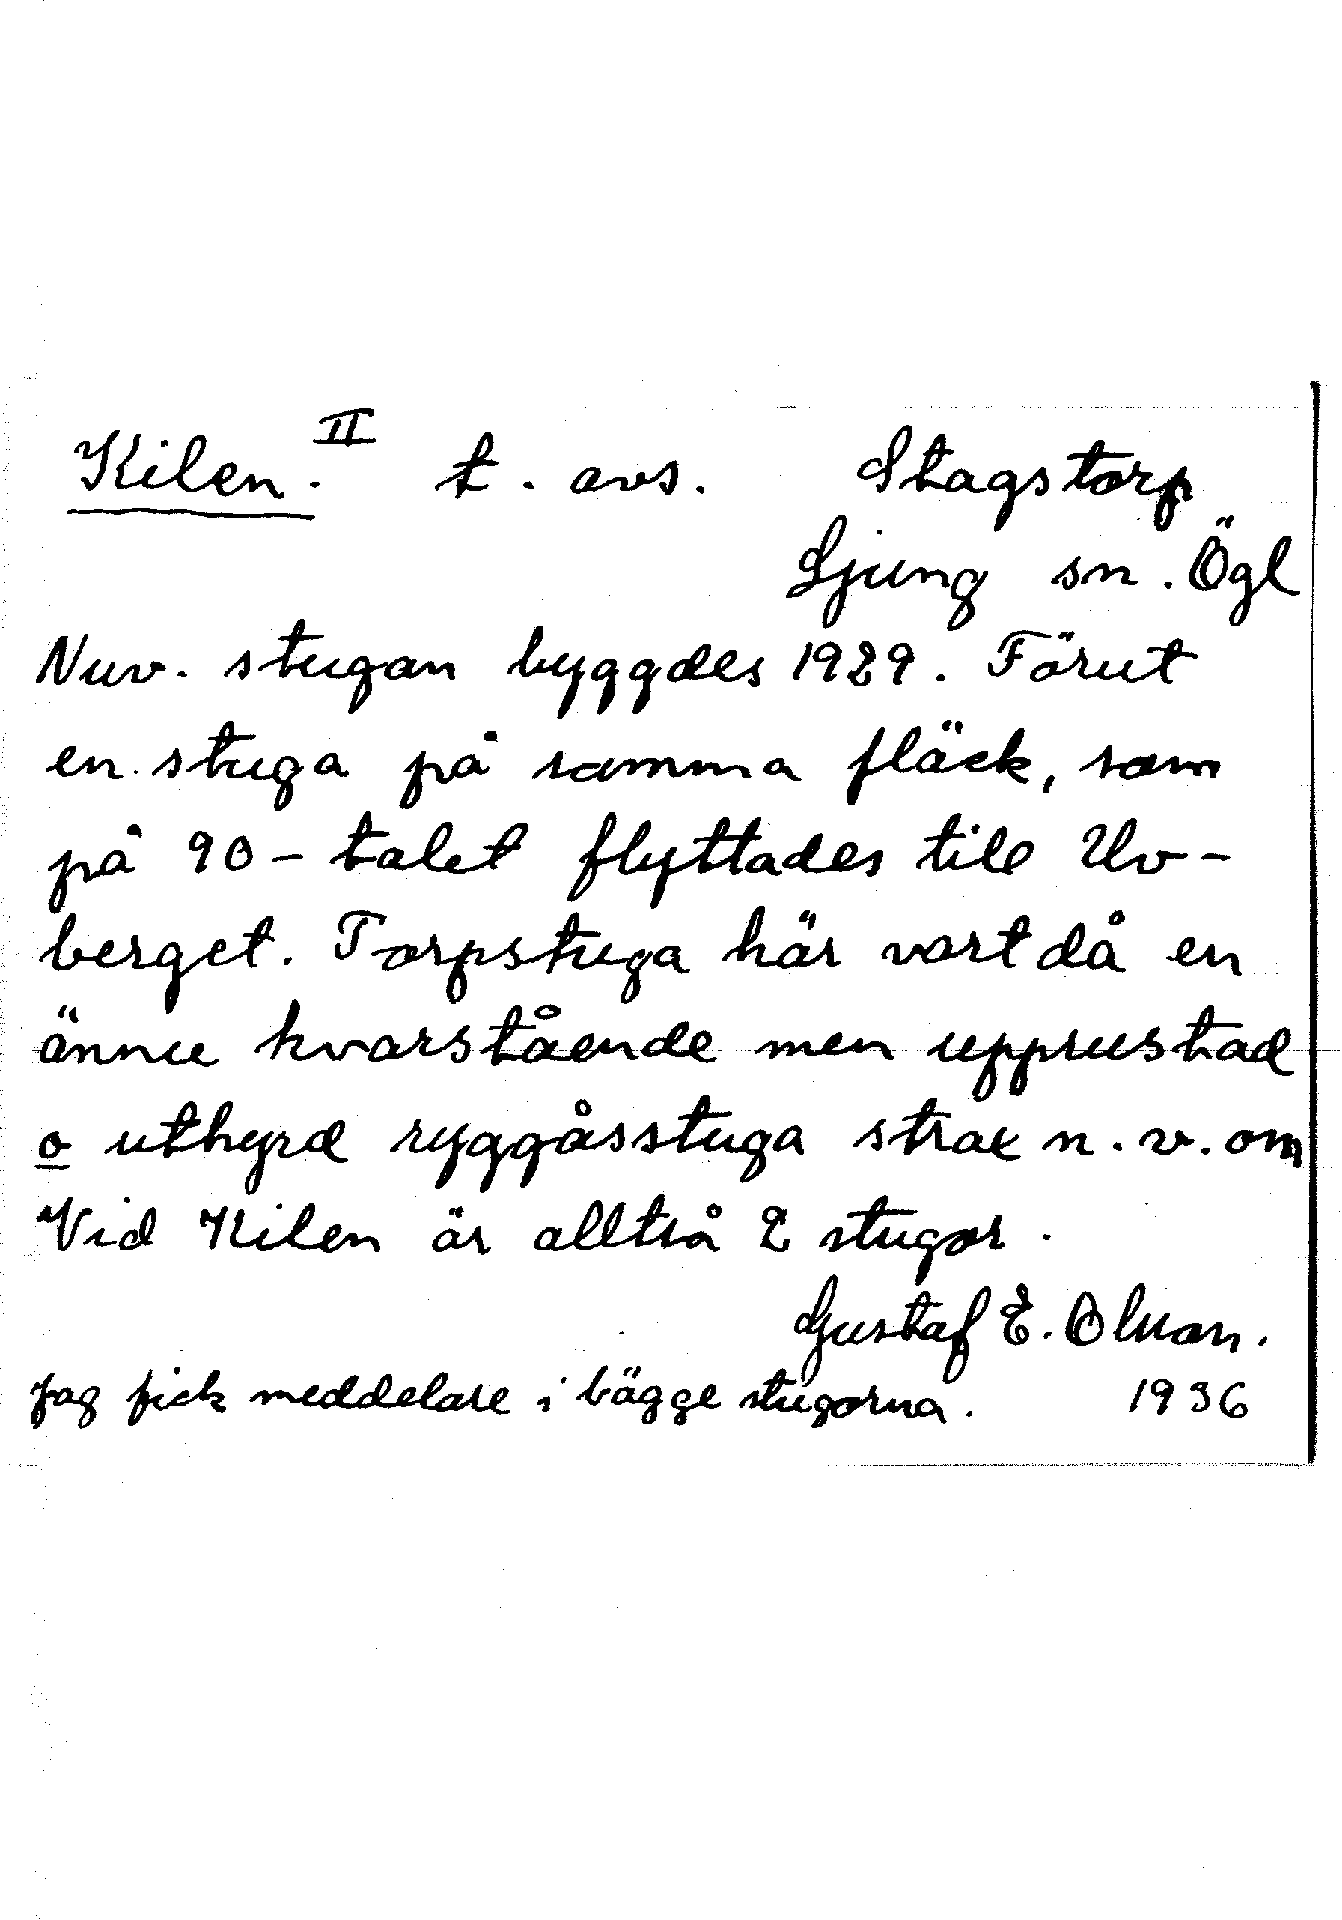 Kilen. II t. avs. Stagstorp
Ljung sn. Ögl
Nuv. stugan byggdes 1929. Förut
en stuga på samma fläck, som
på 90-talet flyttades till Uv-
berget. Torpstuga här vart då en
ännu kvarstående men upprustad
o uthyrd ryggåsstuga strax n.v. om
Vid Kilen är alltså 2 stugor.
Gustaf E. Olsson.
Jag fick meddelare i bägge stugorna. 1936